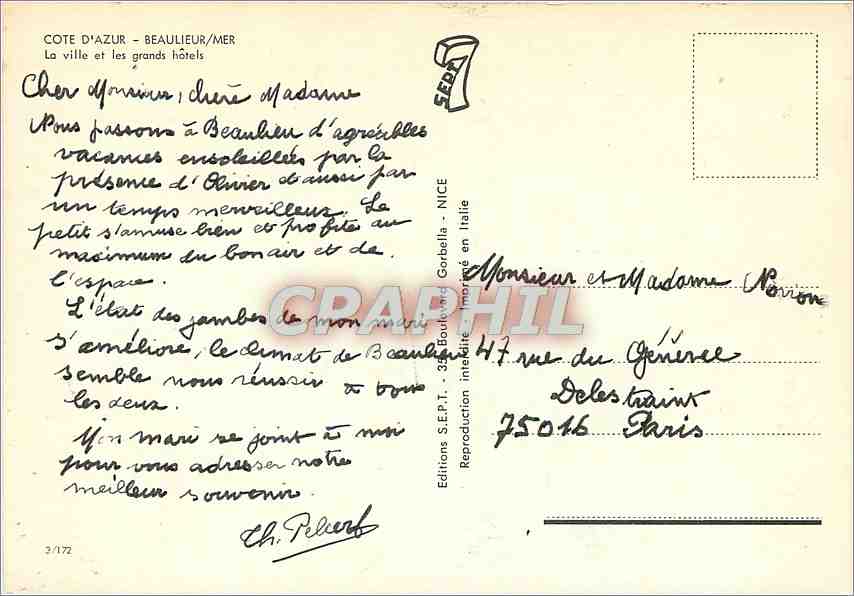 COTE D'AZUR - BEAULIEUR/MER
La ville et les grands hôtels
Cher Monsieur, chère Madame
Nous passons à Beaulieu d'agréables
vacances ensoleillées par la
présence d'Olivier et aussi par
un temps merveilleux. Le
petit s'amuse bien et profite au
maximum du bon air et de
l'espace.
L'état des jambes de mon mari
s'améliore, le climat de Beaulieu
semble nous réussir à tous
les deux.
Mon mari se joint à moi
pour vous adresser notre
meilleur souvenir.
Th.
3/172
SEPT 7
Editions S.E.P.T. - 35 Boulevard Gorbella - NICE
Reproduction interdite - Imprimé en Italie
Monsieur et Madame
47 rue du Général
Delestraint
75016 Paris
CPAPHIL